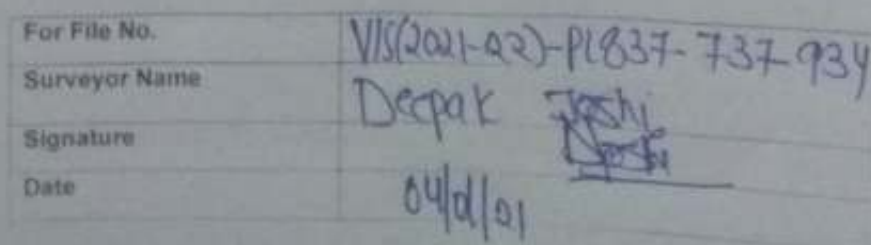 For File No. VIS(2021-22)-PL837-737-934
Surveyor Name Deepak Joshi
Signature
Date